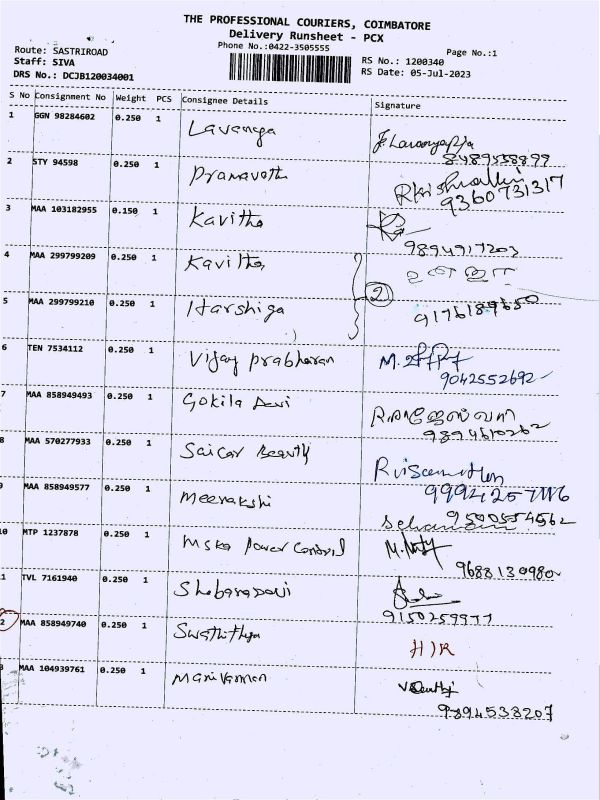 THE PROFESSIONAL COURIERS, COIMBATORE
Delivery Runsheet - PCX
Phone No.:0422-3505555
Page No.:1
Route: SASTRIROAD
Staff: SIVA
DRS No.: DCJB120034001
RS No.: 1200340
RS Date: 05-Jul-2023
S No Consignment No Weight PCS Consignee Details Signature
1 GGN 98284602 0.250 1 Lavanya
8489558899
2 STY 94598 0.250 1 Pramavoth
9360731317
3 MAA 103182955 0.150 1 Kavitha
9894917203
4 MAA 299799209 0.250 1 Kavitha
5 MAA 299799210 0.250 1 Harshiga 2
9176189650
6 TEN 7534112 0.250 1 Vijay prabharan
9042552692
7 MAA 858949493 0.250 1 Gokila Devi
9894610262
8 MAA 570277933 0.250 1 Saicar Beauty
9 MAA 858949577 0.250 1 Meenakshi
9500554562
10 MTP 1237878 0.250 1 Mska Power Control
9688130980
11 TVL 7161940 0.250 1 ShobanaDevi
9150259977
12 MAA 858949740 0.250 1 Swathithya H/R
13 MAA 104939761 0.250 1 Manivannan
9894538207